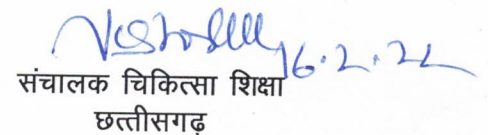 16.2.22
संचालक चिकित्सा शिक्षा
छत्तीसगढ़